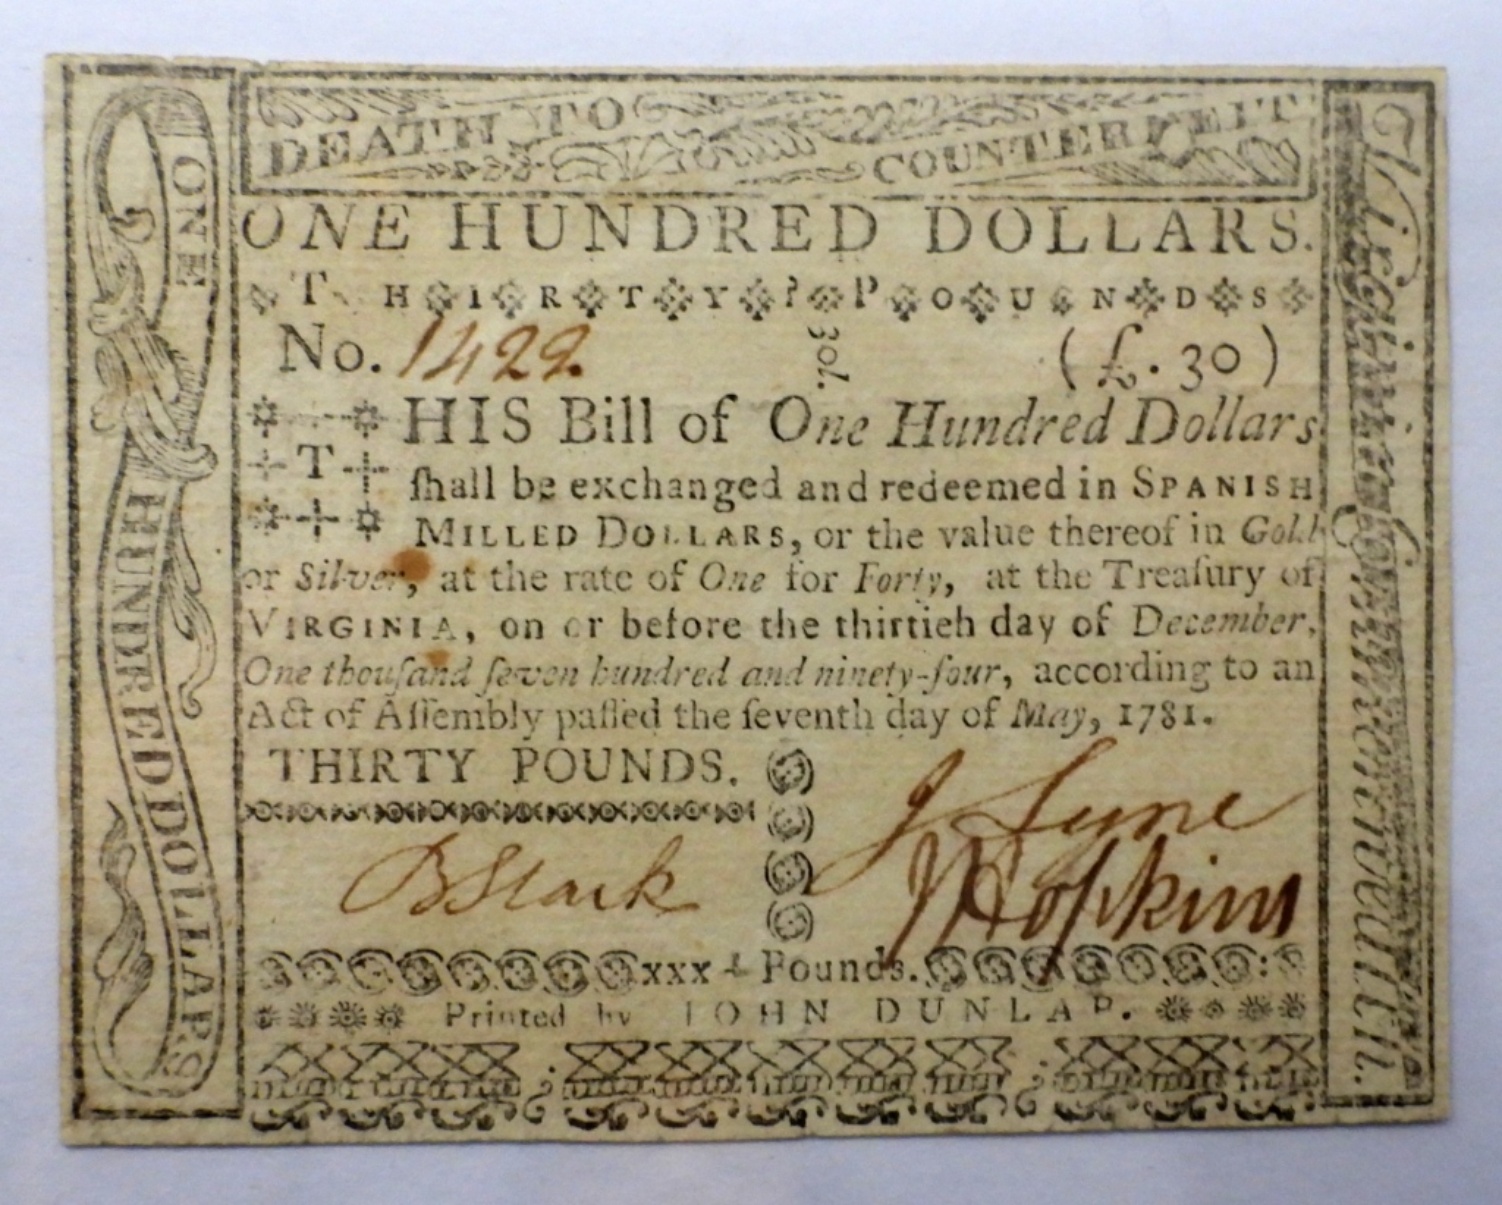 DEATH TO COUNTERFEIT
ONE HUNDRED DOLLARS.
THIRTY POUNDS
No. 1422. 30l. (£. 30)
THIS Bill of One Hundred Dollars
ſhall be exchanged and redeemed in SPANISH
MILLED DOLLARS, or the value thereof in Gold
or Silver, at the rate of One for Forty, at the Treaſury of
VIRGINIA, on or before the thirtieh day of December,
One thouſand ſeven hundred and ninety-four, according to an
Act of Aſſembly paſſed the ſeventh day of May, 1781.
THIRTY POUNDS.
J Lyne
B Stark
J Hopkins
xxx Pounds.
Printed by JOHN DUNLAP.
ONE HUNDRED DOLLARS
Virginia Commonwealth.